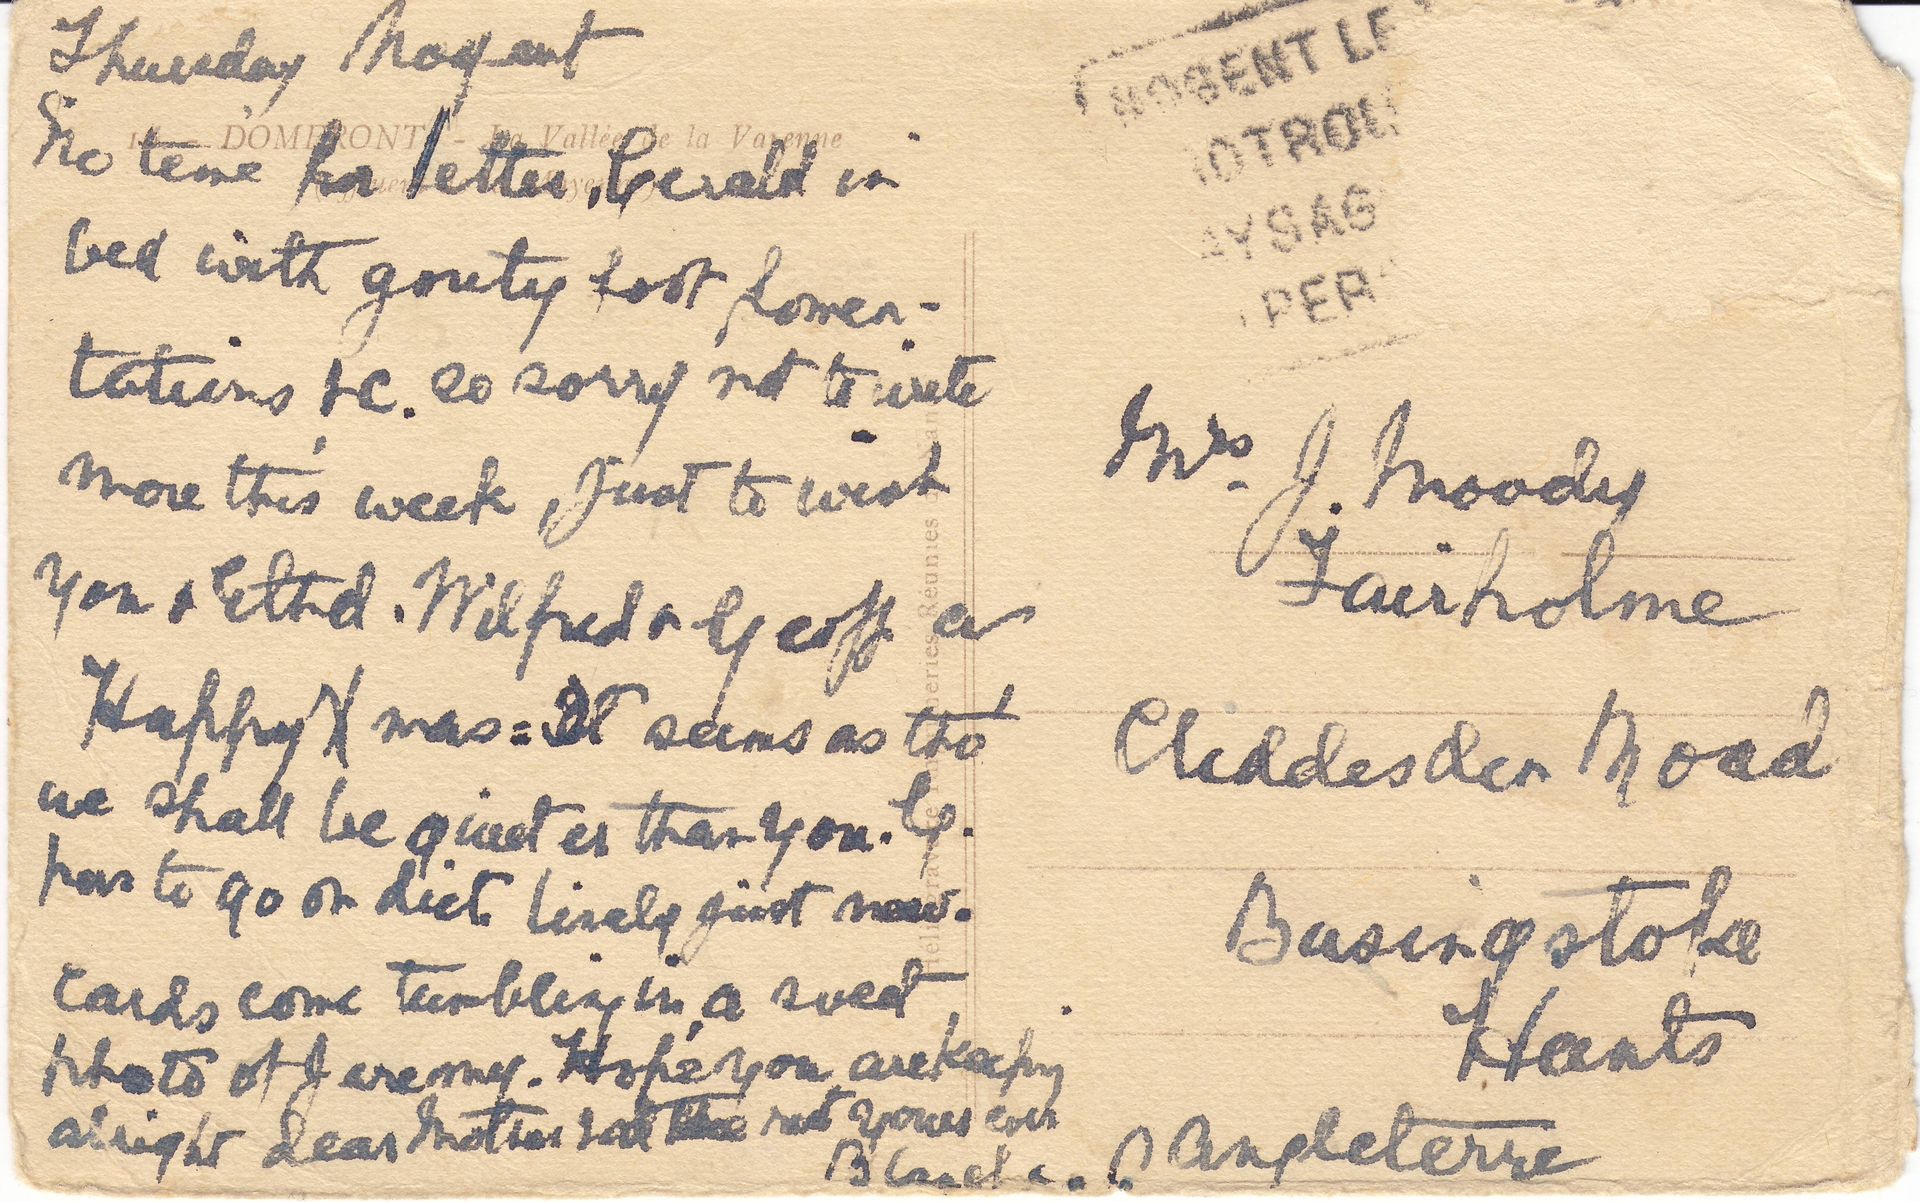 Thursday Nogent
No time for letter, Gerald in
bed with gouty foot fomen-
tations &c. so sorry not to write
more this week, Just to wish
you & Ethel. Wilfred & Geoff a
Happy Xmas = It seems as tho'
we shall be quieter than you. G.
has to go on diet. lively just now.
Cards come tumbling in, a sweet
photo of Jeremy. Hope you are keeping
alright dear Mother & all the rest yours ever
Blanche
DOMFRONT - La Vallée de la Varenne
NOGENT LE
OTROU
AYSAG
PER
Mrs. J. Moody
Fairholme
Cliddesden Road
Basingstoke
Hants
Angleterre